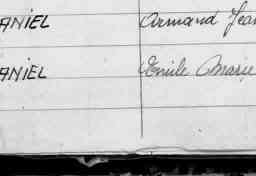 ANIEL Armand Jean
ANIEL Emile Marie